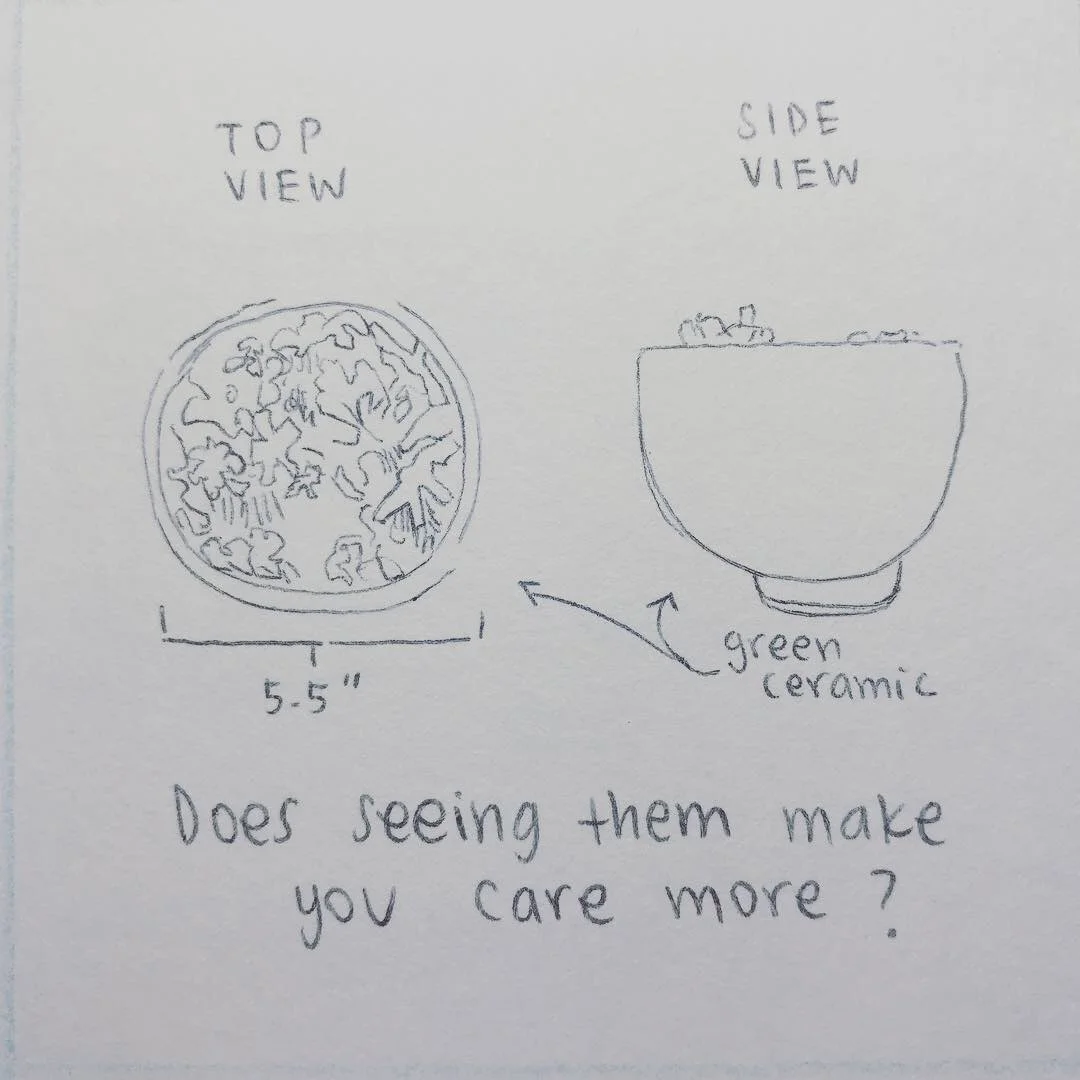 TOP
VIEW
SIDE
VIEW
5.5"
green
ceramic
Does seeing them make
you care more?